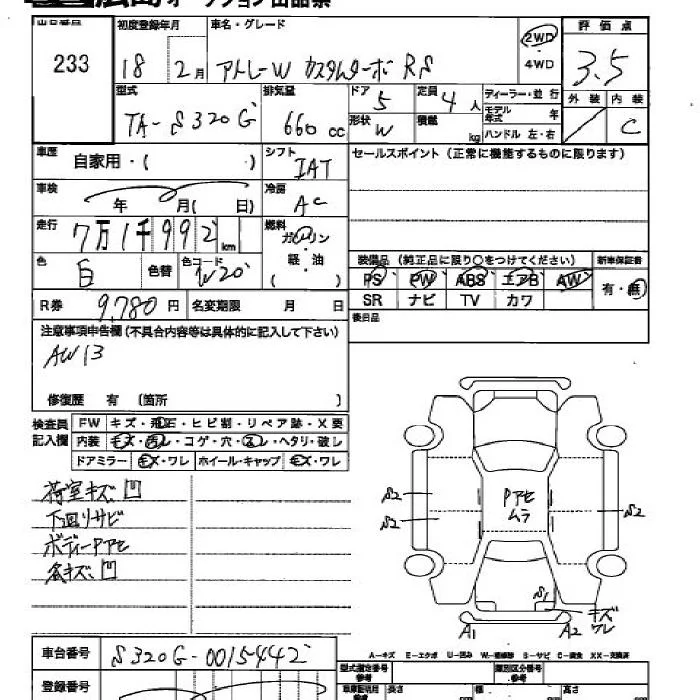 広島オークション出品票
出品番号 初度登録年月 車名・グレード 2WD ・ 4WD 評価点
233 18 2月 アトレーW カスタムターボRS 3.5
型式 排気量 ドア 5 定員 4人 ディーラー・並行 外装 内装
TA-S320G 660cc 形状 W 積載 kg モデル年式 年 C
ハンドル 左・右
車歴 自家用・( ) シフト IAT セールスポイント(正常に機能するものに限ります)
車検 年 月( 日) 冷房 AC
走行 7万1千992km 燃料 ガソリン・軽・油( )
色 白 色替 色コード W20 装備品(純正品に限り〇をつけてください) 新車保証書
PS PW ABS エアB AW 有・無
SR ナビ TV カワ
R券 9,780円 名変期限 月 日 後日品
注意事項申告欄(不具合内容等は具体的に記入して下さい)
AW13
修復歴 有 (箇所 )
検査員記入欄 FW キズ・飛石・ヒビ割・リペア跡・X要
内装 キズ・汚レ・コゲ・穴・スレ・ヘタリ・破レ
ドアミラー キズ・ワレ ホイール・キャップ キズ・ワレ
荷室キズ凹
下回リサビ
ボディーアセ
各キズ、凹
Pアセ
ムラ
S2
S2
S2
S1
キズ
ワレ
A1 A2
A-キズ E-エクボ U-凹み W-補修跡 S-サビ C-腐食 XX-交換済
車台番号 S320G-0015442
型式指定番号 参考 類別区分番号 参考
登録番号
車庫証明用 参考 長さ 幅 高さ